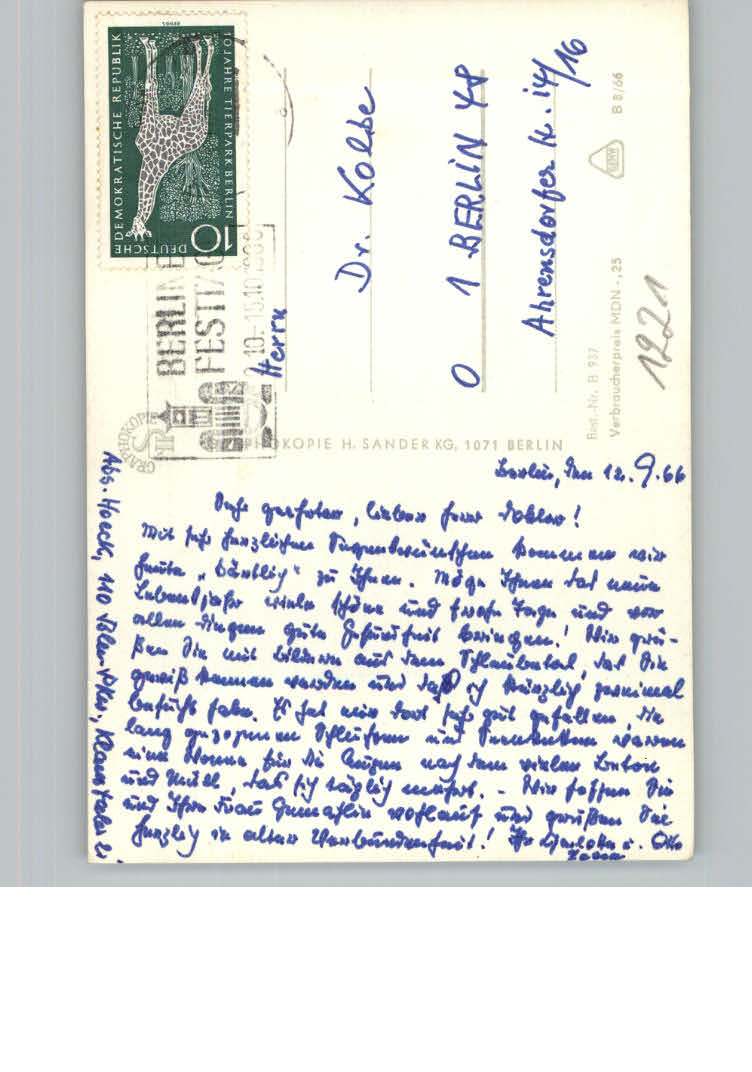 DEUTSCHE DEMOKRATISCHE REPUBLIK
10 JAHRE TIERPARK BERLIN
10
BERLINER
FESTTAGE
2.10.-15.10.1966
Herrn
Dr. Kolbe
1 BERLIN
Ahrensdorfer
B 8/66
Best.-Nr. B 937
Verbraucherpreis MDN -,25
1221
GRAPHOKOPIE
GRAPHOKOPIE H. SANDER KG, 1071 BERLIN
Abs. Hoeck, 110
Berlin, den 12.9.66
Sehr geehrter, lieber Herr Doktor!
Mit sehr herzlichen Segenswünschen kommen wir
heute zu Ihnen. Möge Ihnen das neue
Lebensjahr viele schöne und frohe Tage und vor
allen Dingen gute Gesundheit bringen! Wir grü-
ßen Sie mit Bildern aus dem Schlaubetal, das Sie
gewiß kennen werden und das ich kürzlich zweimal
besucht habe. Es hat mir dort sehr gut gefallen, die
lang gezogenen und waren
eine Wonne für die Augen nach dem vielen Beton
und Müll, das sich täglich mehrt. - Wir hoffen Sie
und Ihre Frau Gemahlin wohlauf und grüßen Sie
herzlich in alter Verbundenheit! Ihre u. Otto